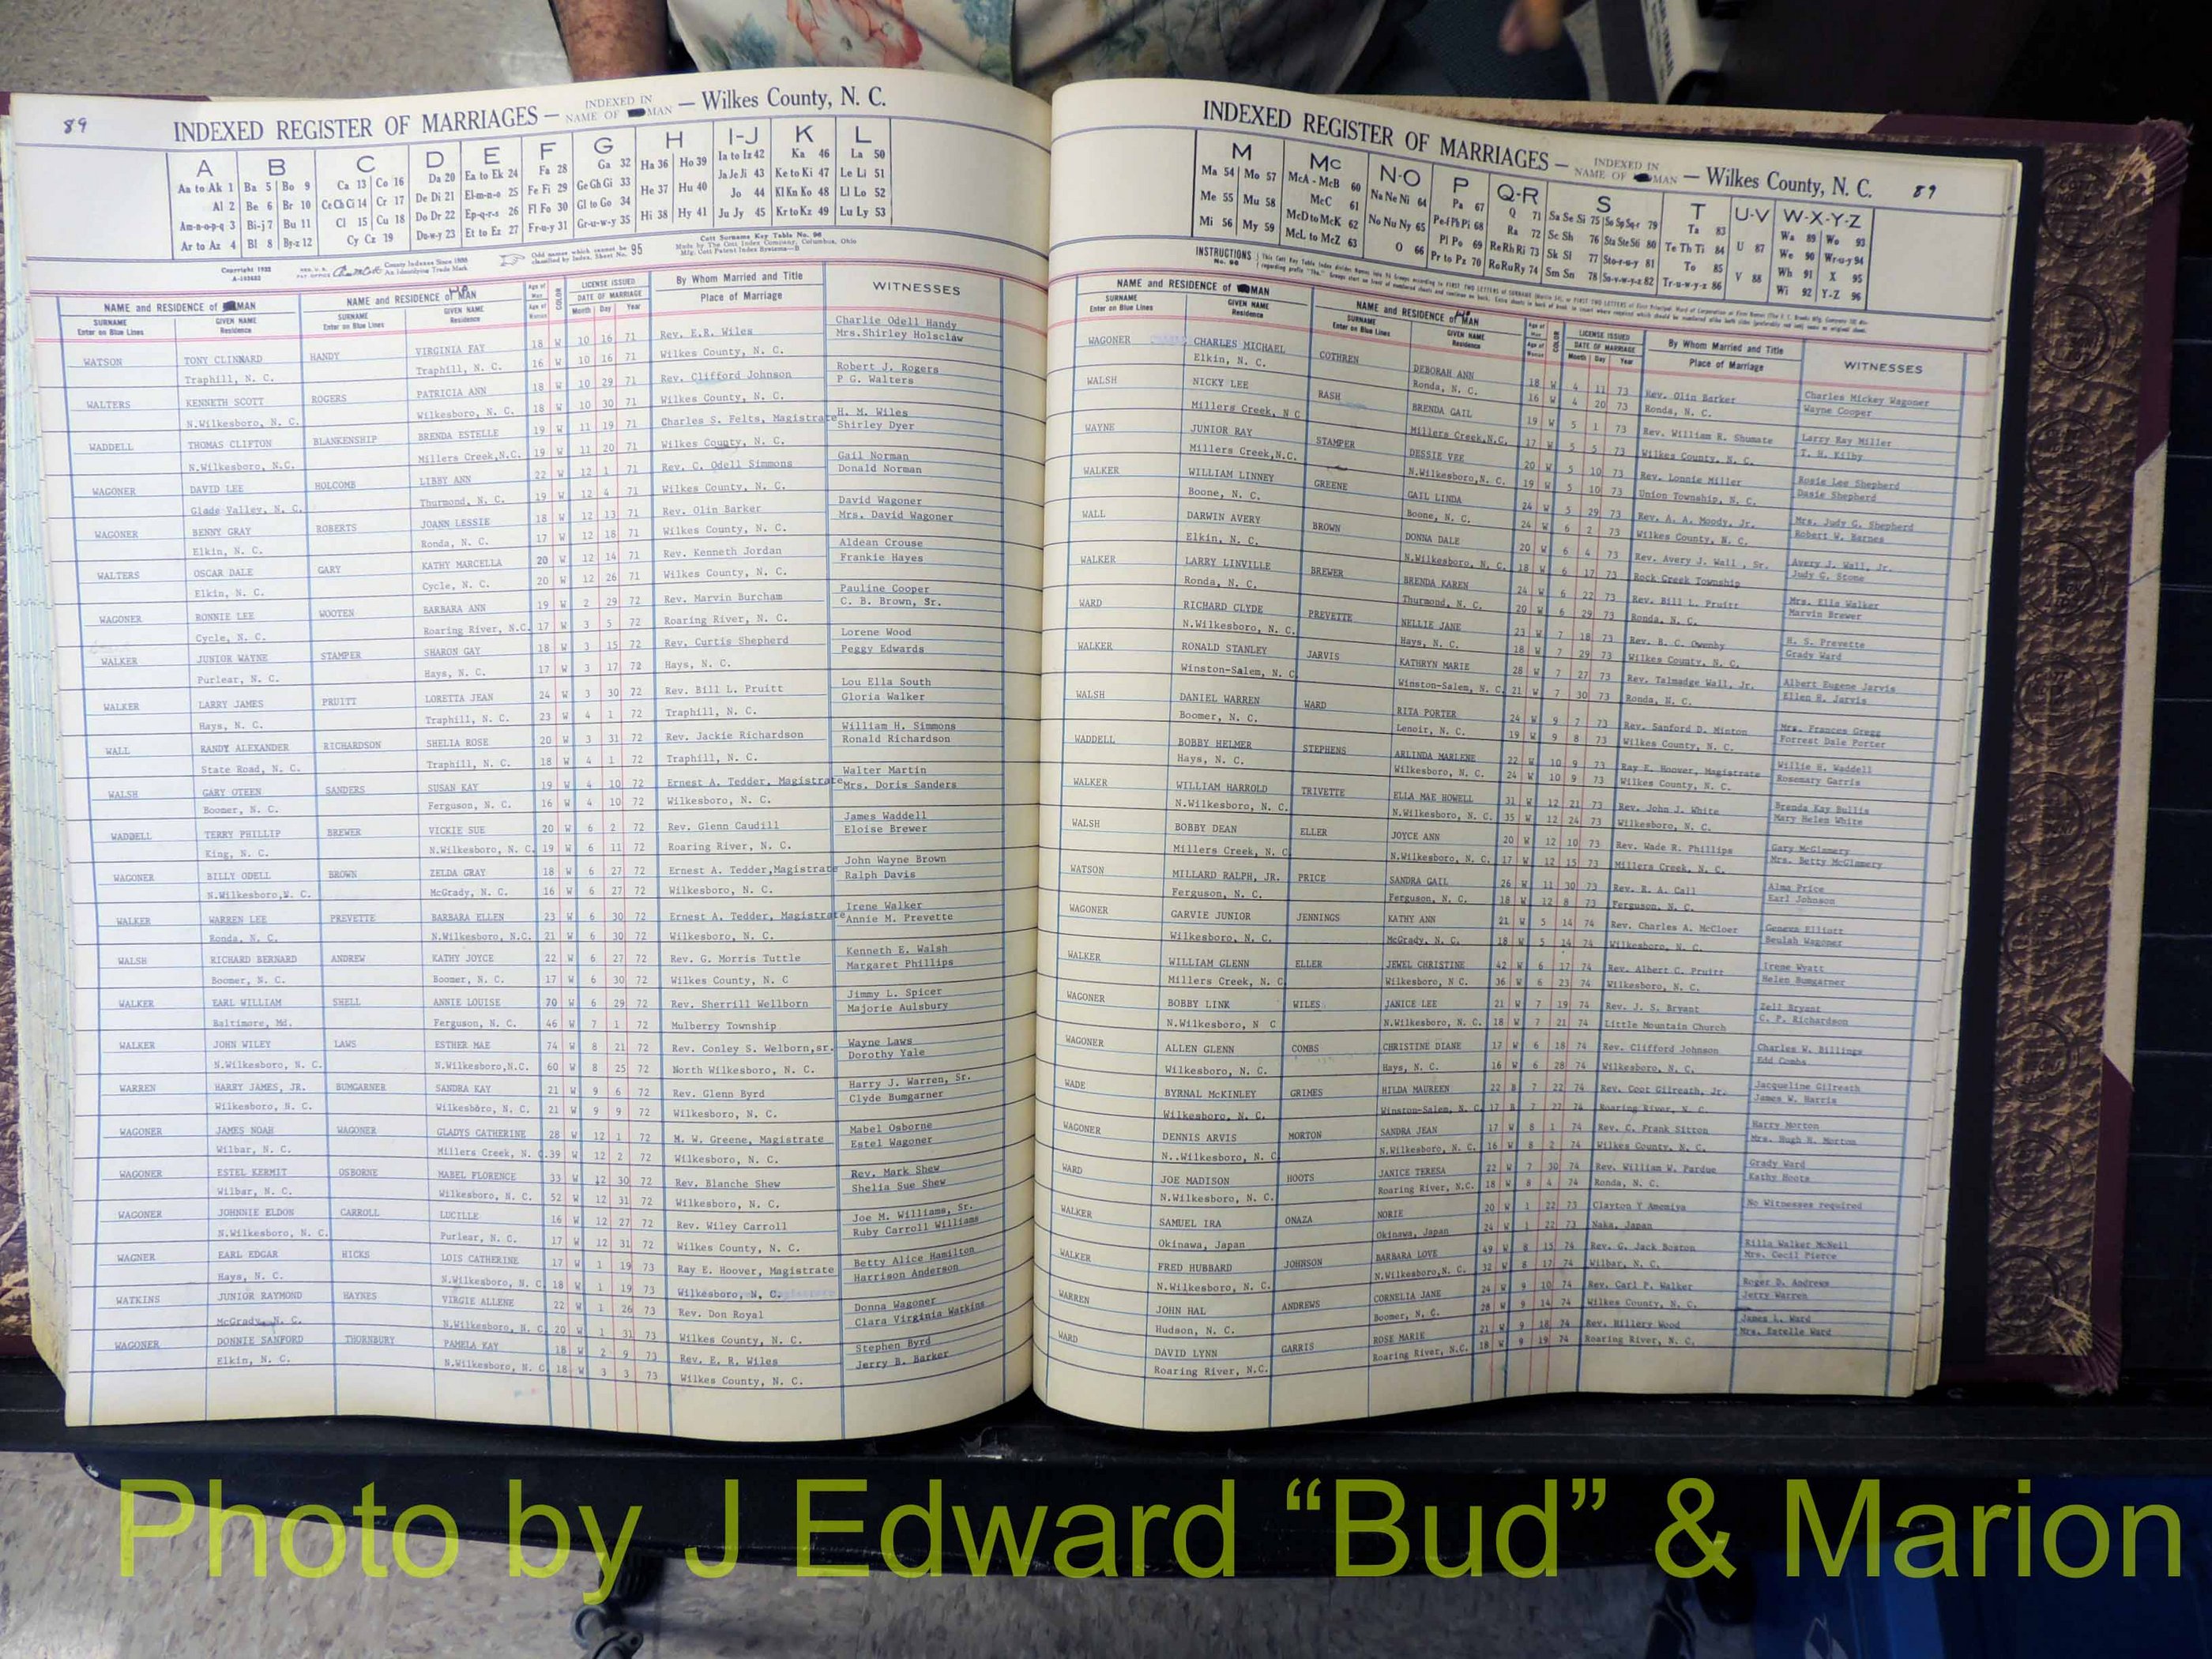 89
INDEXED REGISTER OF MARRIAGES — INDEXED IN NAME OF MAN — Wilkes County, N. C.
A B C D E F G H I-J K L
Aa to Ak 1 Ba 5 Bo 9 Ca 13 Co 16 Da 20 Ea to Ek 24 Fa 28 Ga 32 Ha 36 Ho 39 Ia to Iz 42 Ka 46 La 50
Al 2 Be 6 Br 10 Ce Ch Ci 14 Cr 17 De Di 21 El-m-n-o 25 Fe Fi 29 Ge Gh Gi 33 He 37 Hu 40 Ja Je Ji 43 Ke to Ki 47 Le Li 51
Am-n-o-p-q 3 Bi-j 7 Bu 11 Cl 15 Cu 18 Do Dr 22 Ep-q-r-s 26 Fl Fo 30 Gl to Go 34 Hi 38 Hy 41 Jo 44 Kl Kn Ko 48 Ll Lo 52
Ar to Az 4 Bl 8 By-z 12 Cy Cz 19 Du-w-y 23 Et to Ez 27 Fr-u-y 31 Gr-u-w-y 35 Ju Jy 45 Kr to Kz 49 Lu Ly 53
NAME and RESIDENCE of MAN NAME and RESIDENCE of WOMAN LICENSE ISSUED By Whom Married and Title WITNESSES
SURNAME Enter on Blue Lines GIVEN NAME Residence SURNAME Enter on Blue Lines GIVEN NAME Residence Age of Man Age of Woman COLOR DATE OF MARRIAGE Month Day Year Place of Marriage
WATSON TONY CLINNARD HANDY VIRGINIA FAY 18 W 10 16 71 Rev. E.R. Wiles Charlie Odell Handy
Traphill, N. C. Traphill, N. C. 16 W 10 16 71 Wilkes County, N. C. Mrs.Shirley Holsclaw
WALTERS KENNETH SCOTT ROGERS PATRICIA ANN 18 W 10 29 71 Rev. Clifford Johnson Robert J. Rogers
N.Wilkesboro, N. C. Wilkesboro, N. C. 18 W 10 30 71 Wilkes County, N. C. P G. Walters
WADDELL THOMAS CLIFTON BLANKENSHIP BRENDA ESTELLE 19 W 11 19 71 Charles S. Felts, Magistrate H. M. Wiles
N.Wilkesboro, N.C. Millers Creek,N.C. 19 W 11 20 71 Wilkes County, N. C. Shirley Dyer
WAGONER DAVID LEE HOLCOMB LIBBY ANN 22 W 12 1 71 Rev. C. Odell Simmons Gail Norman
Glade Valley, N. C. Thurmond, N. C. 19 W 12 4 71 Wilkes County, N. C. Donald Norman
WAGONER BENNY GRAY ROBERTS JOANN LESSIE 18 W 12 13 71 Rev. Olin Barker David Wagoner
Elkin, N. C. Ronda, N. C. 17 W 12 18 71 Wilkes County, N. C. Mrs. David Wagoner
WALTERS OSCAR DALE GARY KATHY MARCELLA 20 W 12 14 71 Rev. Kenneth Jordan Aldean Crouse
Elkin, N. C. Cycle, N. C. 20 W 12 26 71 Wilkes County, N. C. Frankie Hayes
WAGONER RONNIE LEE WOOTEN BARBARA ANN 19 W 2 29 72 Rev. Marvin Burcham Pauline Cooper
Cycle, N. C. Roaring River, N.C. 17 W 3 5 72 Roaring River, N. C. C. B. Brown, Sr.
WALKER JUNIOR WAYNE STAMPER SHARON GAY 18 W 3 15 72 Rev. Curtis Shepherd Lorene Wood
Purlear, N. C. Hays, N. C. 17 W 3 17 72 Hays, N. C. Peggy Edwards
WALKER LARRY JAMES PRUITT LORETTA JEAN 24 W 3 30 72 Rev. Bill L. Pruitt Lou Ella South
Hays, N. C. Traphill, N. C. 23 W 4 1 72 Traphill, N. C. Gloria Walker
WALL RANDY ALEXANDER RICHARDSON SHELIA ROSE 20 W 3 31 72 Rev. Jackie Richardson William H. Simmons
State Road, N. C. Traphill, N. C. 18 W 4 1 72 Traphill, N. C. Ronald Richardson
WALSH GARY OTEEN SANDERS SUSAN KAY 19 W 4 10 72 Ernest A. Tedder, Magistrate Walter Martin
Boomer, N. C. Ferguson, N. C. 16 W 4 10 72 Wilkesboro, N. C. Mrs. Doris Sanders
WADDELL TERRY PHILLIP BREWER VICKIE SUE 20 W 6 2 72 Rev. Glenn Caudill James Waddell
King, N. C. N.Wilkesboro, N. C. 19 W 6 11 72 Roaring River, N. C. Eloise Brewer
WAGONER BILLY ODELL BROWN ZELDA GRAY 18 W 6 27 72 Ernest A. Tedder,Magistrate John Wayne Brown
N.Wilkesboro,N. C. McGrady, N. C. 16 W 6 27 72 Wilkesboro, N. C. Ralph Davis
WALKER WARREN LEE PREVETTE BARBARA ELLEN 23 W 6 30 72 Ernest A. Tedder, Magistrate Irene Walker
Ronda, N. C. N.Wilkesboro, N.C. 21 W 6 30 72 Wilkesboro, N. C. Annie M. Prevette
WALSH RICHARD BERNARD ANDREW KATHY JOYCE 22 W 6 27 72 Rev. G. Morris Tuttle Kenneth E. Walsh
Boomer, N. C. Boomer, N. C. 17 W 6 30 72 Wilkes County, N. C Margaret Phillips
WALKER EARL WILLIAM SHELL ANNIE LOUISE 70 W 6 29 72 Rev. Sherrill Wellborn Jimmy L. Spicer
Baltimore, Md. Ferguson, N. C. 46 W 7 1 72 Mulberry Township Majorie Aulsbury
WALKER JOHN WILEY LAWS ESTHER MAE 74 W 8 21 72 Rev. Conley S. Welborn,sr. Wayne Laws
N.Wilkesboro, N. C. N.Wilkesboro,N.C. 60 W 8 25 72 North Wilkesboro, N. C. Dorothy Yale
WARREN HARRY JAMES, JR. BUMGARNER SANDRA KAY 21 W 9 6 72 Rev. Glenn Byrd Harry J. Warren, Sr.
Wilkesboro, N. C. Wilkesboro, N. C. 21 W 9 9 72 Wilkesboro, N. C. Clyde Bumgarner
WAGONER JAMES NOAH WAGONER GLADYS CATHERINE 28 W 12 1 72 M. W. Greene, Magistrate Mabel Osborne
Wilbar, N. C. Millers Creek, N. C. 39 W 12 2 72 Wilkesboro, N. C. Estel Wagoner
WAGONER ESTEL KERMIT OSBORNE MABEL FLORENCE 33 W 12 30 72 Rev. Blanche Shew Rev. Mark Shew
Wilbar, N. C. Wilkesboro, N. C. 52 W 12 31 72 Wilkesboro, N. C. Shelia Sue Shew
WAGONER JOHNNIE ELDON CARROLL LUCILLE 16 W 12 27 72 Rev. Wiley Carroll Joe M. Williams, Sr.
N.Wilkesboro, N. C. Purlear, N. C. 17 W 12 31 72 Wilkes County, N. C. Ruby Carroll Williams
WAGNER EARL EDGAR HICKS LOIS CATHERINE 17 W 1 19 73 Ray E. Hoover, Magistrate Betty Alice Hamilton
Hays, N. C. N.Wilkesboro, N. C 18 W 1 19 73 Wilkesboro, N. C. Harrison Anderson
WATKINS JUNIOR RAYMOND HAYNES VIRGIE ALLENE 22 W 1 26 73 Rev. Don Royal Donna Wagoner
McGrady, N. C. N.Wilkesboro, N. C 20 W 1 31 73 Wilkes County, N. C. Clara Virginia Watkins
WAGONER DONNIE SANFORD THORNBURY PAMELA KAY 18 W 2 9 73 Rev. E. R. Wiles Stephen Byrd
Elkin, N. C. N.Wilkesboro, N. C 18 W 3 3 73 Wilkes County, N. C. Jerry B. Barker
INDEXED REGISTER OF MARRIAGES — INDEXED IN NAME OF MAN — Wilkes County, N. C. 89
M Mc N-O P Q-R S T U-V W-X-Y-Z
Ma 54 Mo 57 McA - McB 60 Na Ne Ni 64 Pa 67 Q 71 Sa Se Si 75 So Sp Sq-r 79 Ta 83 U 87 Wa 89 Wo 93
Me 55 Mu 58 McC 61 No Nu Ny 65 Pe-f Ph Pi 68 Ra 72 Sc Sh 76 Sta Ste Sti 80 Te Th Ti 84 V 88 We 90 Wr-u-y 94
Mi 56 My 59 McD to McK 62 O 66 Pl Po 69 Re Rh Ri 73 Sk Sl 77 Sto-r-u-y 81 To 85 Wh 91 X 95
McL to McZ 63 Pr to Pz 70 Ro Ru Ry 74 Sm Sn 78 Su-v-w-y-z 82 Tr-u-w-y-z 86 Wi 92 Y-Z 96
NAME and RESIDENCE of MAN NAME and RESIDENCE of WOMAN LICENSE ISSUED DATE OF MARRIAGE By Whom Married and Title Place of Marriage WITNESSES
WAGONER CHARLES MICHAEL COTHREN DEBORAH ANN 18 W 4 11 73 Rev. Olin Barker Charles Mickey Wagoner
Elkin, N. C. Ronda, N. C. 16 W 4 20 73 Ronda, N. C. Wayne Cooper
WALSH NICKY LEE RASH BRENDA GAIL 19 W 5 1 73 Rev. William R. Shumate Larry Ray Miller
Millers Creek, N C Millers Creek,N.C. 17 W 5 5 73 Wilkes County, N. C. T. H. Kilby
WAYNE JUNIOR RAY STAMPER DESSIE VEE 20 W 5 10 73 Rev. Lonnie Miller Rosie Lee Shepherd
Millers Creek,N.C. N.Wilkesboro,N. C. 19 W 5 10 73 Union Township, N. C. Dasie Shepherd
WALKER WILLIAM LINNEY GREENE GAIL LINDA 24 W 5 29 73 Rev. A. A. Moody, Jr. Mrs. Judy G. Shepherd
Boone, N. C. Boone, N. C. 24 W 6 2 73 Wilkes County, N. C. Robert W. Barnes
WALL DARWIN AVERY BROWN DONNA DALE 20 W 6 4 73 Rev. Avery J. Wall , Sr. Avery J. Wall, Jr.
Elkin, N. C. N.Wilkesboro, N. C. 18 W 6 17 73 Rock Creek Township Judy G. Stone
WALKER LARRY LINVILLE BREWER BRENDA KAREN 24 W 6 22 73 Rev. Bill L. Pruitt Mrs. Ella Walker
Ronda, N. C. Thurmond, N. C. 20 W 6 29 73 Ronda, N. C. Marvin Brewer
WARD RICHARD CLYDE PREVETTE NELLIE JANE 23 W 7 18 73 Rev. B. C. Owenby H. S. Prevette
N.Wilkesboro, N. C. Hays, N. C. 18 W 7 29 73 Wilkes County, N. C. Grady Ward
WALKER RONALD STANLEY JARVIS KATHRYN MARIE 28 W 7 27 73 Rev. Talmadge Wall, Jr. Albert Eugene Jarvis
Winston-Salem, N. C Winston-Salem, N. C. 21 W 7 30 73 Ronda, N. C. Ellen H. Jarvis
WALSH DANIEL WARREN WARD RITA PORTER 24 W 9 7 73 Rev. Sanford D. Minton Mrs. Frances Gregg
Boomer, N. C. Lenoir, N. C. 19 W 9 8 73 Wilkes County, N. C. Forrest Dale Porter
WADDELL BOBBY HELMER STEPHENS ARLINDA MARLENE 22 W 10 9 73 Ray E. Hoover, Magistrate Willie H. Waddell
Hays, N. C. Wilkesboro, N. C. 24 W 10 9 73 Wilkes County, N. C. Rosemary Garris
WALKER WILLIAM HARROLD TRIVETTE ELLA MAE HOWELL 31 W 12 21 73 Rev. John J. White Brenda Kay Bullis
N.Wilkesboro, N. C. N.Wilkesboro, N. C. 35 W 12 24 73 Wilkesboro, N. C. Mary Helen White
WALSH BOBBY DEAN ELLER JOYCE ANN 20 W 12 10 73 Rev. Wade R. Phillips Gary McGlamery
Millers Creek, N. C N.Wilkesboro, N. C. 17 W 12 15 73 Millers Creek, N. C. Mrs. Betty McGlamery
WATSON MILLARD RALPH, JR. PRICE SANDRA GAIL 26 W 11 30 73 Rev. R. A. Call Alma Price
Ferguson, N. C. Ferguson, N. C. 18 W 12 8 73 Ferguson, N. C. Earl Johnson
WAGONER GARVIE JUNIOR JENNINGS KATHY ANN 21 W 5 14 74 Rev. Charles A. McCloer Geneva Elliott
Wilkesboro, N. C. McGrady, N. C. 18 W 5 14 74 Wilkesboro, N. C. Beulah Wagoner
WALKER WILLIAM GLENN ELLER JEWEL CHRISTINE 42 W 6 17 74 Rev. Albert C. Pruitt Irene Wyatt
Millers Creek, N. C Wilkesboro, N C. 36 W 6 23 74 Wilkesboro, N. C. Helen Bumgarner
WAGONER BOBBY LINK WILES JANICE LEE 21 W 7 19 74 Rev. J. S. Bryant Zell Bryant
N.Wilkesboro, N C N.Wilkesboro, N. C. 18 W 7 21 74 Little Mountain Church C. P. Richardson
WAGONER ALLEN GLENN COMBS CHRISTINE DIANE 17 W 6 18 74 Rev. Clifford Johnson Charles W. Billings
Wilkesboro, N. C. Hays, N. C. 16 W 6 28 74 Wilkesboro, N. C. Edd Combs
WADE BYRNAL McKINLEY GRIMES HILDA MAUREEN 22 B 7 22 74 Rev. Coot Gilreath, Jr. Jacqueline Gilreath
Wilkesboro, N. C. Winston-Salem, N. C 17 B 7 27 74 Roaring River, N. C. James W. Harris
WAGONER DENNIS ARVIS MORTON SANDRA JEAN 17 W 8 1 74 Rev. C. Frank Sitton Harry Morton
N..Wilkesboro, N. C N.Wilkesboro, N. C. 16 W 8 2 74 Wilkes County, N. C. Mrs. Hugh H. Morton
WARD JOE MADISON HOOTS JANICE TERESA 22 W 7 30 74 Rev. William W. Pardue Grady Ward
N.Wilkesboro, N. C. Roaring River, N.C. 18 W 8 4 74 Ronda, N. C. Kathy Hoots
WALKER SAMUEL IRA ONAZA NORIE 20 W 1 22 73 Clayton Y Amemiya No Witnesses required
Okinawa, Japan Okinawa, Japan 24 W 1 22 73 Naka, Japan
WALKER FRED HUBBARD JOHNSON BARBARA LOVE 49 W 8 15 74 Rev. G. Jack Boston Rilla Walker McNeil
N.Wilkesboro, N. C. N.Wilkesboro,N. C. 32 W 8 17 74 Wilbar, N. C. Mrs. Cecil Pierce
WARREN JOHN HAL ANDREWS CORNELIA JANE 24 W 9 10 74 Rev. Carl P. Walker Roger D. Andrews
Hudson, N. C. Boomer, N. C. 28 W 9 14 74 Wilkes County, N. C. Jerry Warren
WARD DAVID LYNN GARRIS ROSE MARIE 21 W 9 18 74 Rev. Hillery Wood James L. Ward
Roaring River, N.C. Roaring River, N.C. 18 W 9 19 74 Roaring River, N. C. Mrs. Estelle Ward
Photo by J Edward “Bud” & Marion